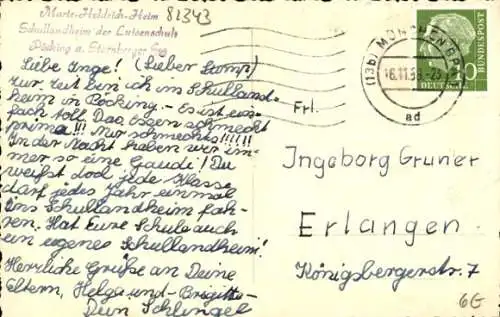 Marie-Heldrich-Heim 82343
Schullandheim der Luisenschule
Pöcking a. Starnberger See
Liebe Inge! (Lieber Lump)
zur Zeit bin ich im Schulland-
heim in Pöcking. - Es ist ein-
fach toll. Das Essen schmeckt
prima!!! Nur schmeckts!!!!!!
In der Nacht haben wir im-
mer so eine Gaudi! Du
weißt doch jede Klasse
darf jedes Jahr einmal
ins Schullandheim fah-
ren. Hat Eure Schule auch
ein eigenes Schullandheim!
Herzliche Grüße an Deine
Eltern, Helga und Brigitte
Dein Schlingel
(13b) MÜNCHEN BP
16.11.56.-23
ad
DEUTSCHE BUNDESPOST
10
Frl.
Ingeborg Gruner
Erlangen
Königsbergerstr. 7
6G